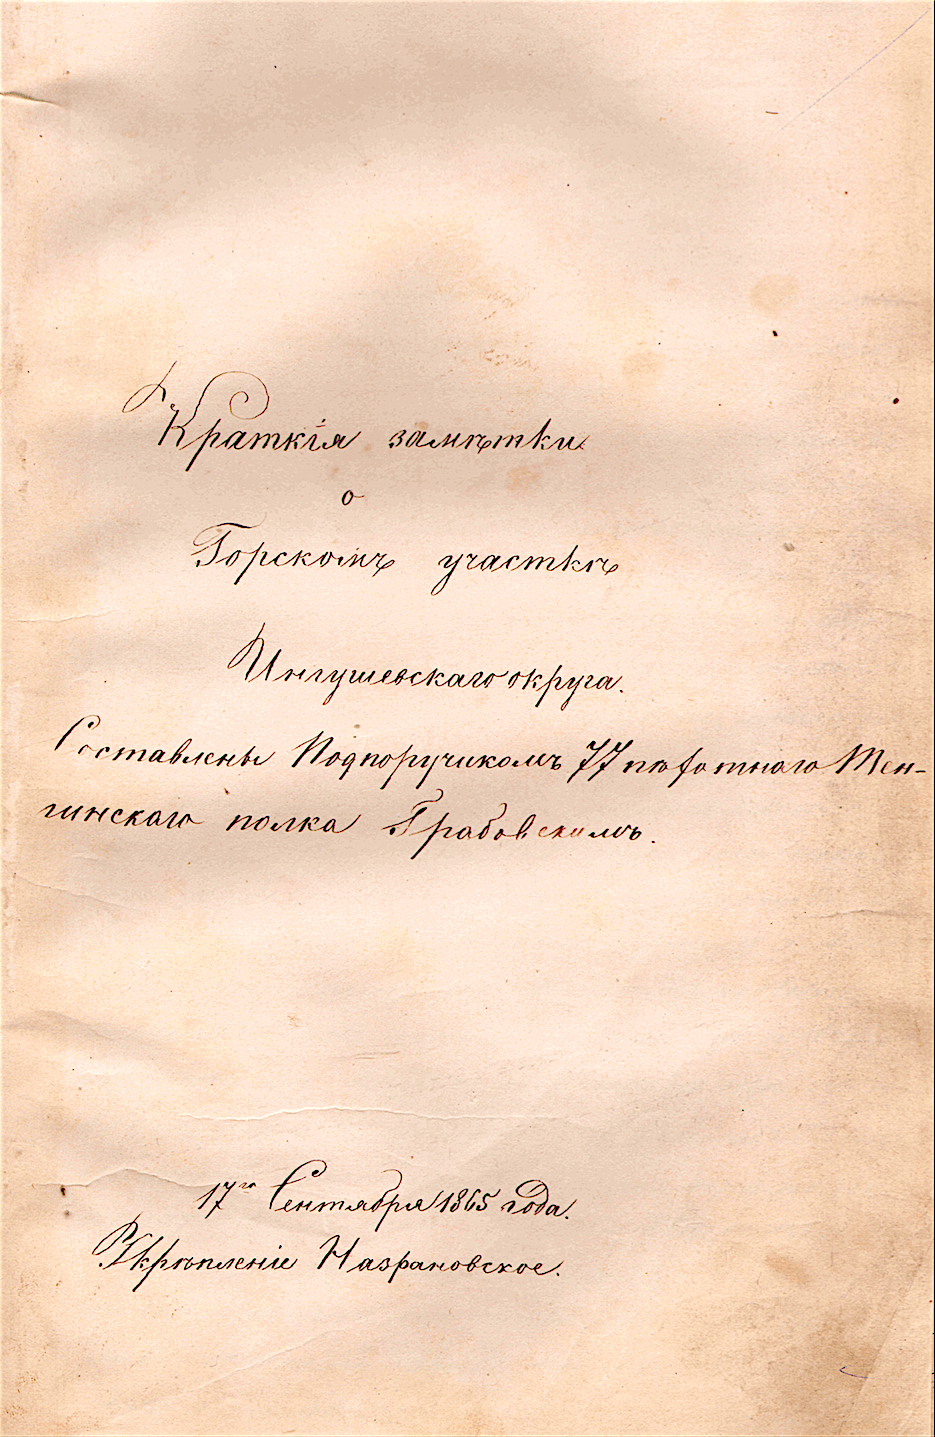 Краткія замѣтки
о
Горскомъ участкѣ
Ингушевскаго округа.
Составлены Подпоручикомъ 77 пѣхотнаго Тен-
гинскаго полка Грабовскимъ.
17го Сентября 1865 года.
Укрѣпленіе Назрановское.